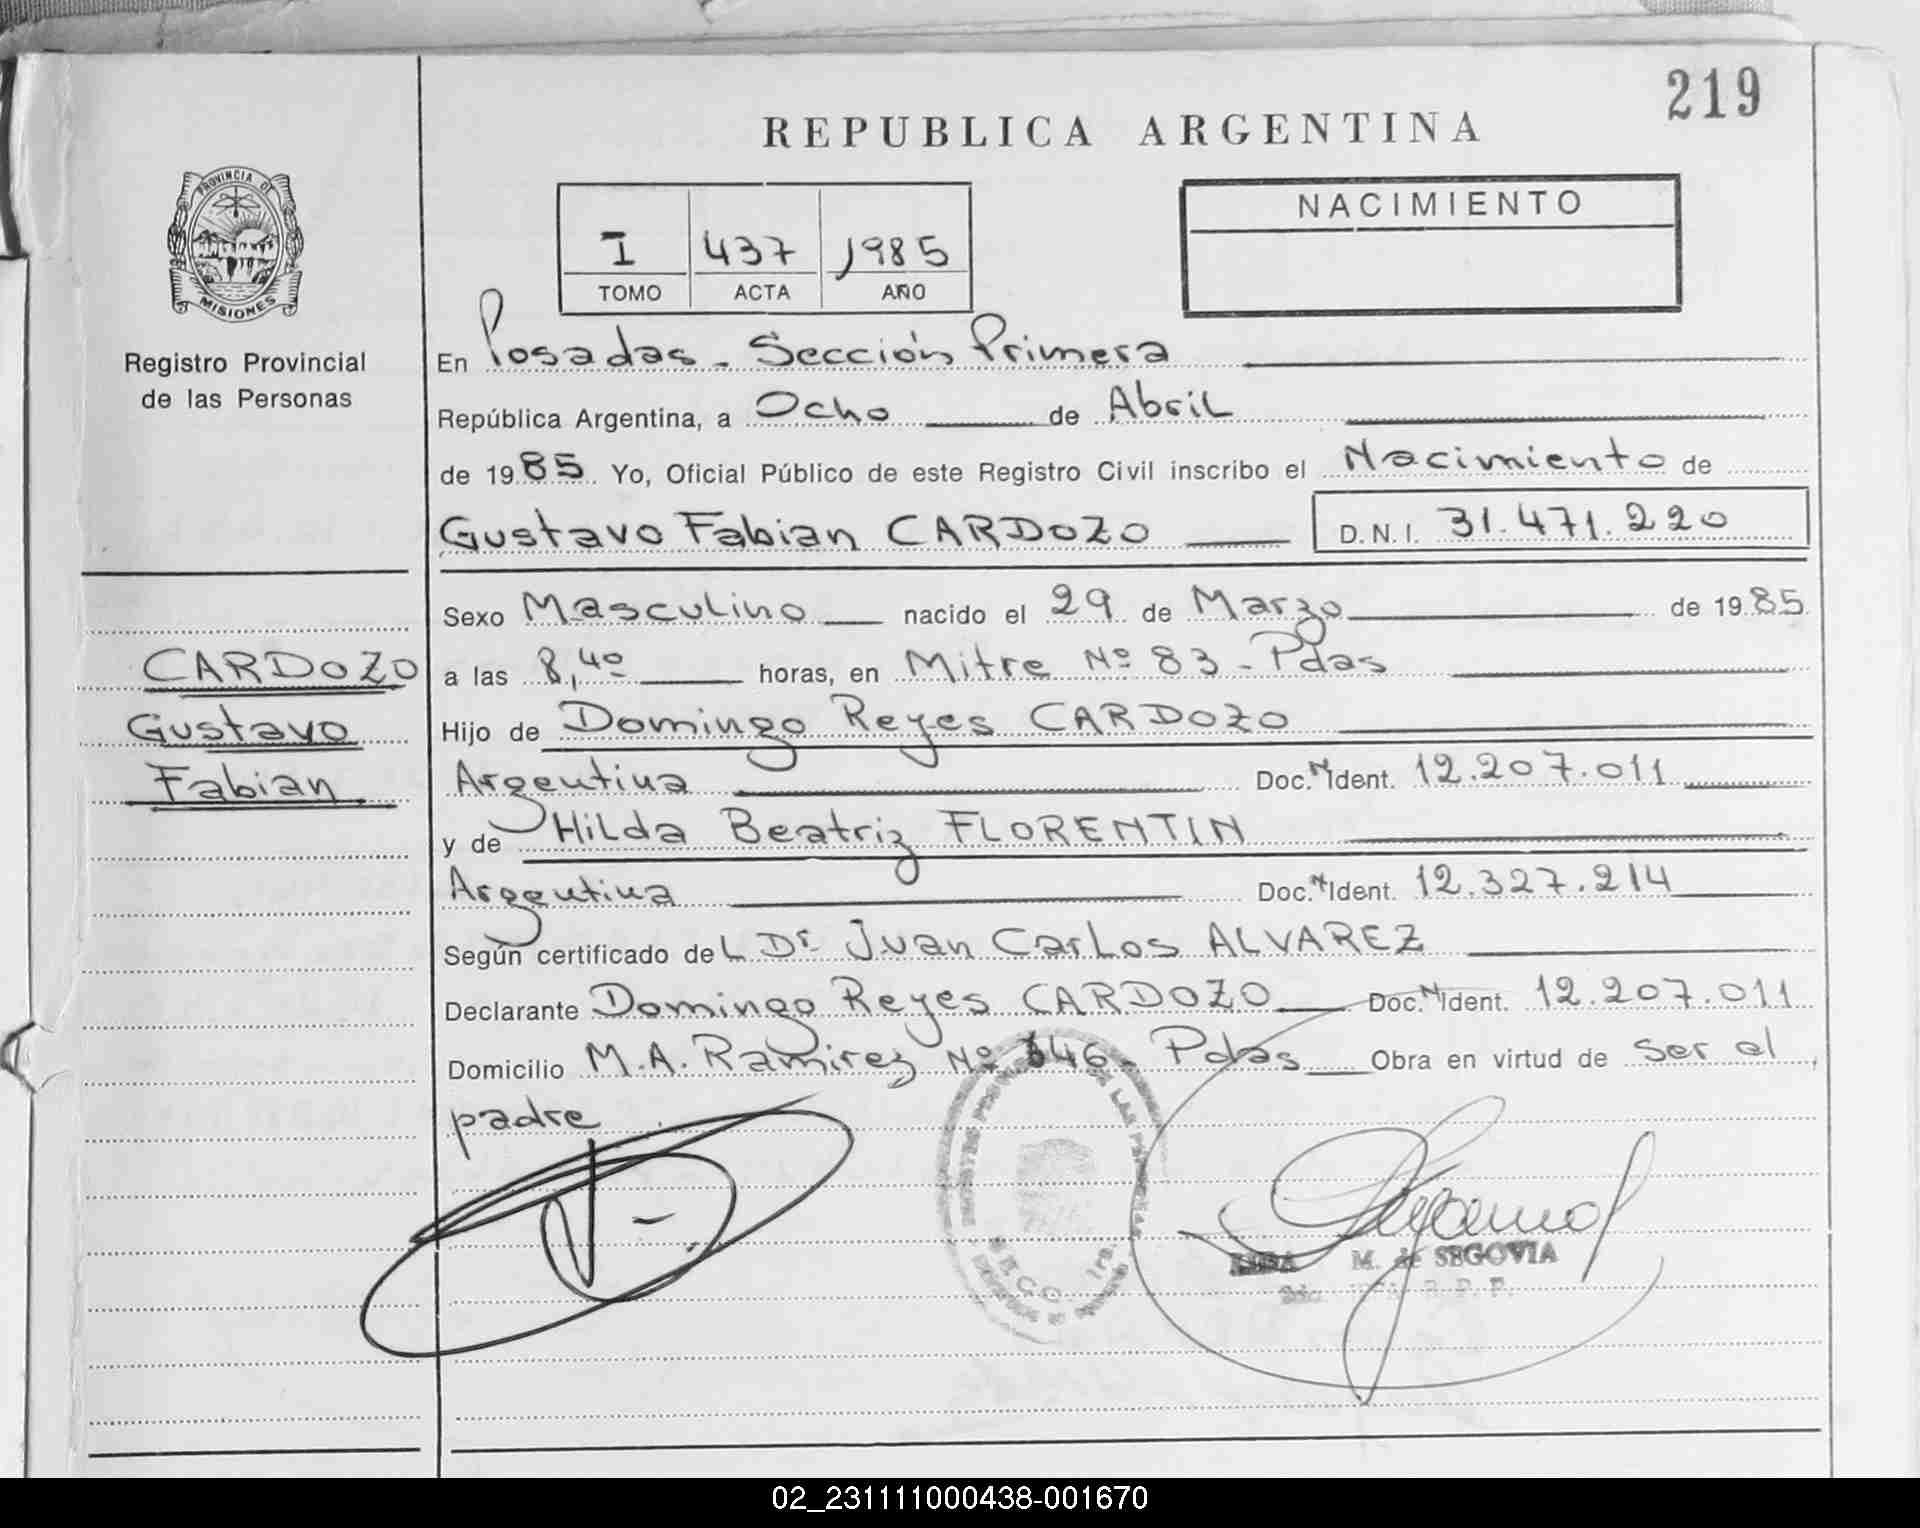 219
REPUBLICA ARGENTINA
PROVINCIA DE
MISIONES
Registro Provincial
de las Personas
I 437 1985
TOMO ACTA AÑO
NACIMIENTO
En Posadas - Sección Primera
República Argentina, a Ocho de Abril
de 1985 Yo, Oficial Público de este Registro Civil inscribo el Nacimiento de
Gustavo Fabian CARDOZO D.N.I. 31.471.220
CARDOZO
Gustavo
Fabian
Sexo Masculino nacido el 29 de Marzo de 1985
a las 8,40 horas, en Mitre Nº 83 - Pdas
Hijo de Domingo Reyes CARDOZO
Argentina Doc. N Ident. 12.207.011
y de Hilda Beatriz FLORENTIN
Argentina Doc. N Ident. 12.327.214
Según certificado del Dr Juan Carlos ALVAREZ
Declarante Domingo Reyes CARDOZO Doc. N Ident. 12.207.011
Domicilio M.A. Ramirez Nº 646 - Pdas Obra en virtud de ser el
padre
M. de SEGOVIA
02_231111000438-001670